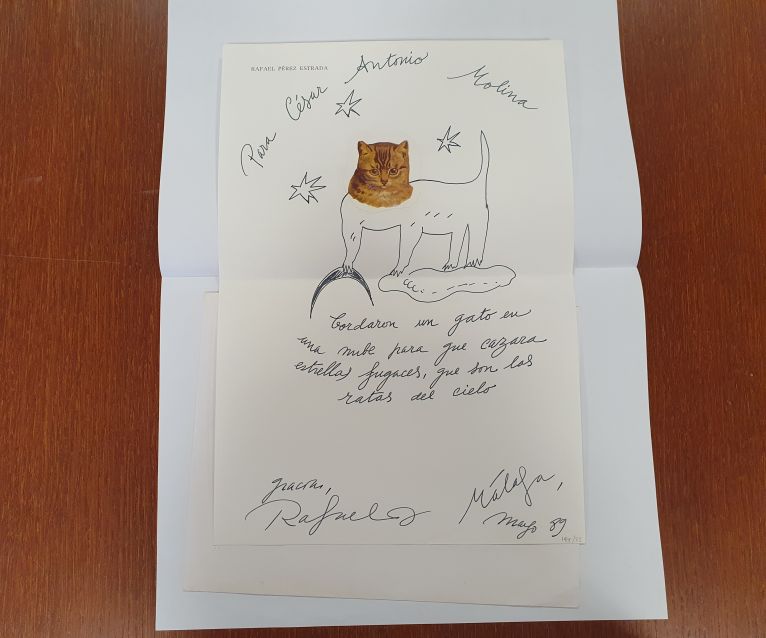 RAFAEL PÉREZ ESTRADA
Para César Antonio Molina
Bordaron un gato en
una nube para que cazara
estrellas fugaces, que son las
ratas del cielo
gracias,
Rafael
Málaga,
mayo 89